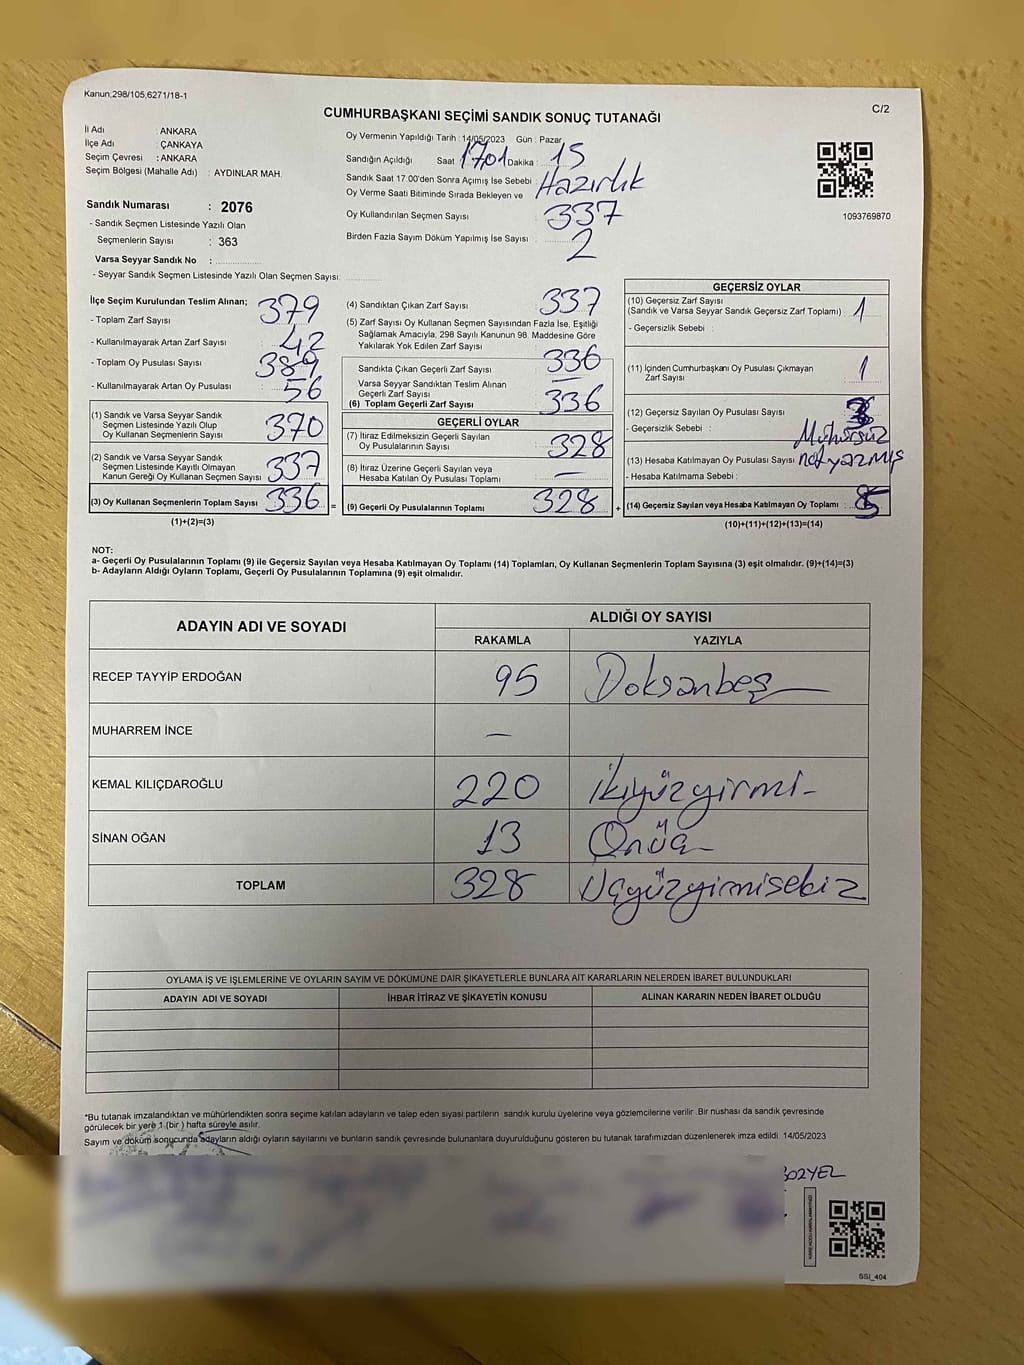 Kanun;298/105,6271/18-1
C/2
CUMHURBAŞKANI SEÇİMİ SANDIK SONUÇ TUTANAĞI
İl Adı : ANKARA
İlçe Adı : ÇANKAYA
Seçim Çevresi : ANKARA
Seçim Bölgesi (Mahalle Adı) : AYDINLAR MAH.
Sandık Numarası : 2076
- Sandık Seçmen Listesinde Yazılı Olan
Seçmenlerin Sayısı : 363
Varsa Seyyar Sandık No :
- Seyyar Sandık Seçmen Listesinde Yazılı Olan Seçmen Sayısı:
Oy Vermenin Yapıldığı Tarih : 14/05/2023 Gün : Pazar
Sandığın Açıldığı Saat 1701 Dakika : 15
Sandık Saat 17:00'den Sonra Açımış İse Sebebi : Hazırlık
Oy Verme Saati Bitiminde Sırada Bekleyen ve
Oy Kullandırılan Seçmen Sayısı : 337
Birden Fazla Sayım Döküm Yapılmış İse Sayısı : 2
1093769870
İlçe Seçim Kurulundan Teslim Alınan;
- Toplam Zarf Sayısı : 379
- Kullanılmayarak Artan Zarf Sayısı : 42
- Toplam Oy Pusulası Sayısı : 389
- Kullanılmayarak Artan Oy Pusulası : 56
(1) Sandık ve Varsa Seyyar Sandık
Seçmen Listesinde Yazılı Olup
Oy Kullanan Seçmenlerin Sayısı : 370
(2) Sandık ve Varsa Seyyar Sandık
Seçmen Listesinde Kayıtlı Olmayan
Kanun Gereği Oy Kullanan Seçmen Sayısı : 337
(3) Oy Kullanan Seçmenlerin Toplam Sayısı : 336
(1)+(2)=(3)
=
(4) Sandıktan Çıkan Zarf Sayısı : 337
(5) Zarf Sayısı Oy Kullanan Seçmen Sayısından Fazla İse, Eşitliği
Sağlamak Amacıyla, 298 Sayılı Kanunun 98. Maddesine Göre
Yakılarak Yok Edilen Zarf Sayısı :
Sandıkta Çıkan Geçerli Zarf Sayısı : 336
Varsa Seyyar Sandıktan Teslim Alınan
Geçerli Zarf Sayısı : —
(6) Toplam Geçerli Zarf Sayısı : 336
GEÇERLİ OYLAR
(7) İtiraz Edilmeksizin Geçerli Sayılan
Oy Pusulalarının Sayısı : 328
(8) İtiraz Üzerine Geçerli Sayılan veya
Hesaba Katılan Oy Pusulası Toplamı : —
(9) Geçerli Oy Pusulalarının Toplamı : 328
+
GEÇERSİZ OYLAR
(10) Geçersiz Zarf Sayısı
(Sandık ve Varsa Seyyar Sandık Geçersiz Zarf Toplamı) : 1
- Geçersizlik Sebebi :
(11) İçinden Cumhurbaşkanı Oy Pusulası Çıkmayan
Zarf Sayısı : 1
(12) Geçersiz Sayılan Oy Pusulası Sayısı : 3
- Geçersizlik Sebebi : Mühürsüz
(13) Hesaba Katılmayan Oy Pusulası Sayısı not yazmış
- Hesaba Katılmama Sebebi :
(14) Geçersiz Sayılan veya Hesaba Katılmayan Oy Toplamı :
(10)+(11)+(12)+(13)=(14)
NOT:
a- Geçerli Oy Pusulalarının Toplamı (9) ile Geçersiz Sayılan veya Hesaba Katılmayan Oy Toplamı (14) Toplamları, Oy Kullanan Seçmenlerin Toplam Sayısına (3) eşit olmalıdır. (9)+(14)=(3)
b- Adayların Aldığı Oyların Toplamı, Geçerli Oy Pusulalarının Toplamına (9) eşit olmalıdır.
ADAYIN ADI VE SOYADI
ALDIĞI OY SAYISI
RAKAMLA YAZIYLA
RECEP TAYYİP ERDOĞAN 95 Doksanbeş
MUHARREM İNCE —
KEMAL KILIÇDAROĞLU 220 İkiyüzyirmi-
SİNAN OĞAN 13 Onüç
TOPLAM 328 Üçyüzyirmisekiz
OYLAMA İŞ VE İŞLEMLERİNE VE OYLARIN SAYIM VE DÖKÜMÜNE DAİR ŞİKAYETLERLE BUNLARA AİT KARARLARIN NELERDEN İBARET BULUNDUKLARI
ADAYIN ADI VE SOYADI İHBAR İTİRAZ VE ŞİKAYETİN KONUSU ALINAN KARARIN NEDEN İBARET OLDUĞU
*Bu tutanak imzalandıktan ve mühürlendikten sonra seçime katılan adayların ve talep eden siyasi partilerin sandık kurulu üyelerine veya gözlemcilerine verilir .Bir nüshası da sandık çevresinde
görülecek bir yere 1 (bir ) hafta süreyle asılır.
Sayım ve döküm sonucunda adayların aldığı oyların sayılarını ve bunların sandık çevresinde bulunanlara duyurulduğunu gösteren bu tutanak tarafımızdan düzenlenerek imza edildi. 14/05/2023
BOZYEL
SSİ_404